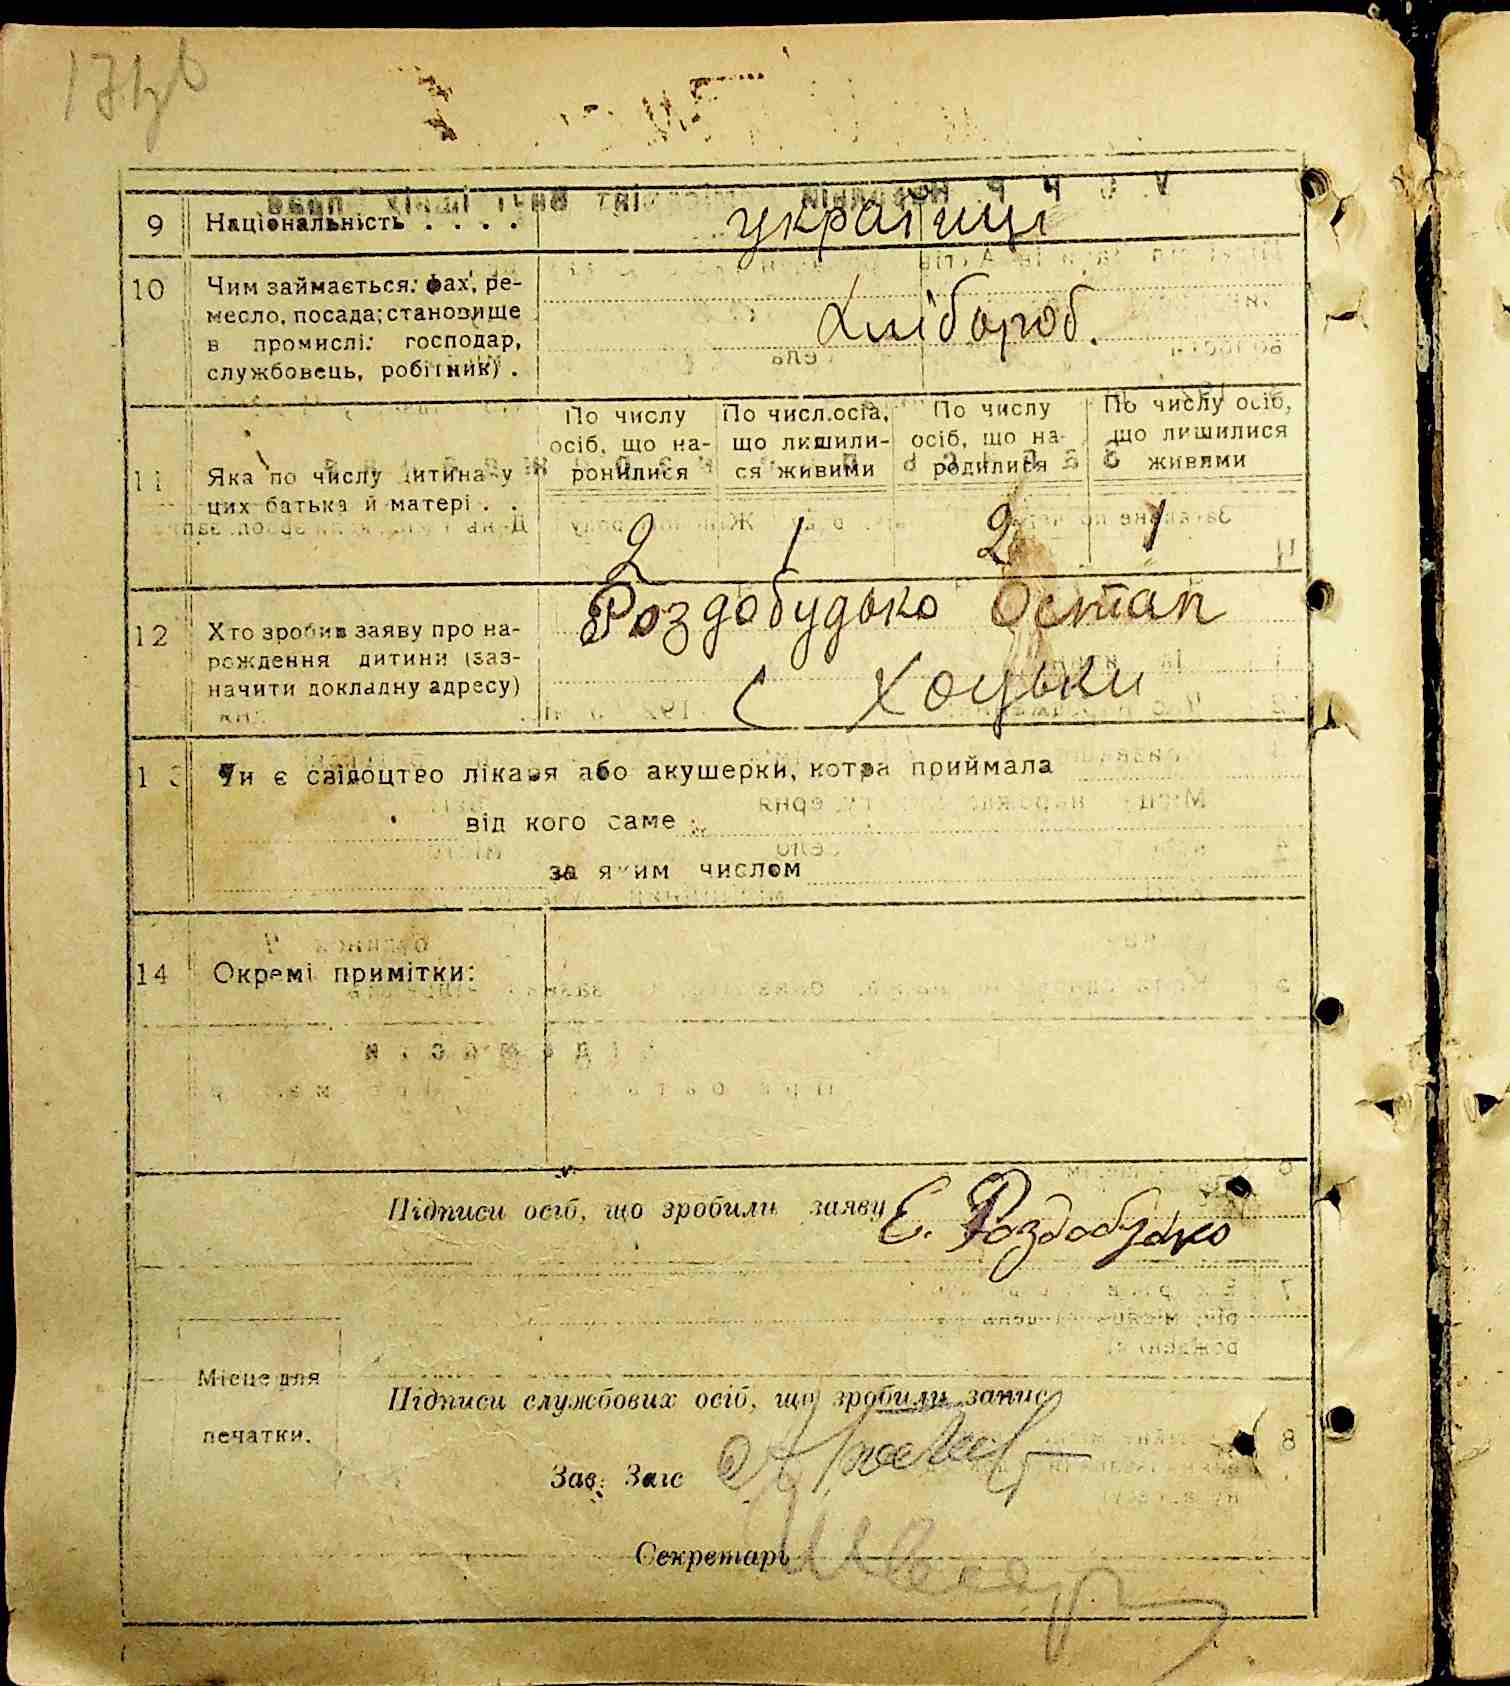 9 Національність . . . . українці
10 Чим займається: фах, ре-
месло, посада; становище
в промислі: господар,
службовець, робітник) .
Хлібороб.
По числу
осіб, що на-
ронилися
По числ.осіа,
що лишили-
ся живими
По числу
осіб, що на-
родилися
По числу осіб,
що лишилися
живями
11 Яка по числу дитина у
цих батька й матері . .
2 1 2 1
12 Хто зробив заяву про на-
рождення дитини (заз-
начити докладну адресу)
Роздобудько Остап
с Хоцьки
13 Чи є свідоцтво лікаря або акушерки, котра приймала
від кого саме
за яким числом
14 Окремі примітки:
Підписи осіб, що зробили заяву Є. Роздобудько
Місце для
печатки.
Підписи службових осіб, що зробили запис
Зав. Загс
Секретарь